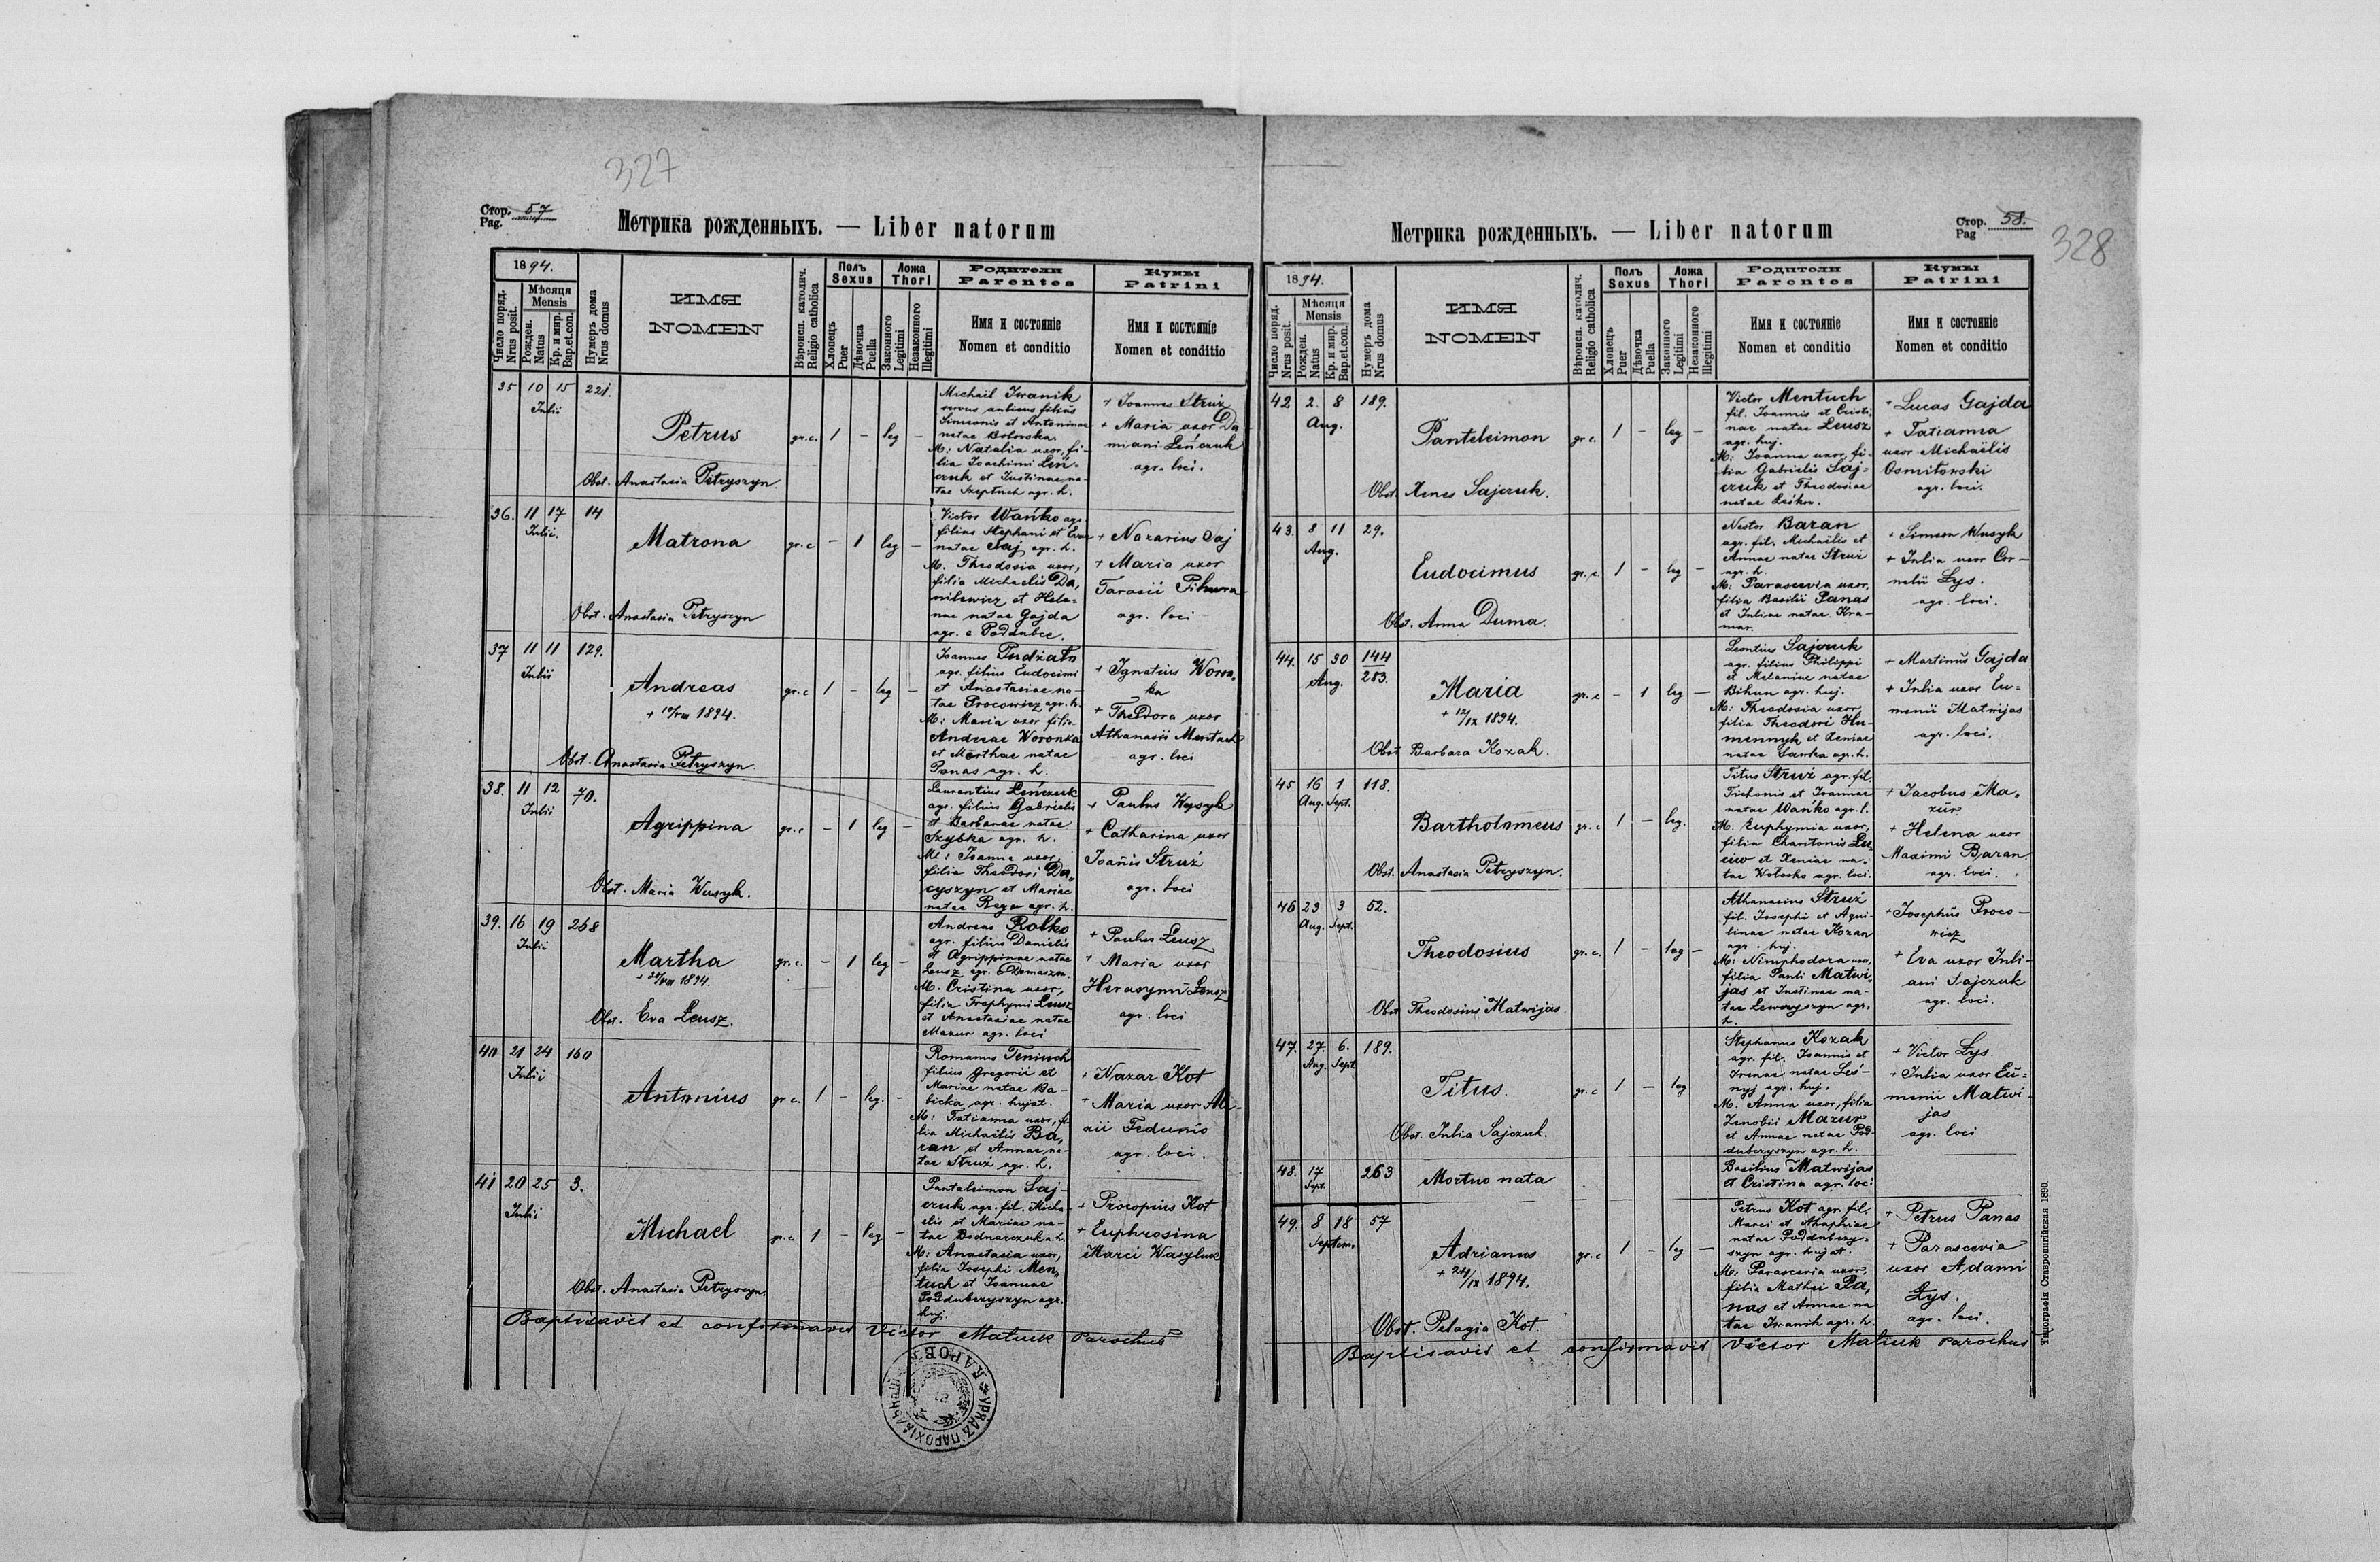 327
Стор. 57
Pag.
Метрика рожденныхъ. — Liber natorum
1894.
Число поряд.
Nrus posit.
Мѣсяця
Mensis
Рожден.
Natus
Кр. и мир.
Bap.et.con.
Нумеръ дома
Nrus domus
ИМЯ
NOMEN
Вѣроисп. католич.
Religio catholica
Полъ
Sexus
Хлопець
Puer
Дѣвочка
Puella
Ложа
Thori
Законного
Legitimi
Незаконного
Illegitimi
Родители
Parentes
Имя и состояніе
Nomen et conditio
Кумы
Patrini
Имя и состояніе
Nomen et conditio
35 10 15 221.
Julii
Petrus gr.c. 1 – leg –
Obst. Anastasia Petryszyn.
Michael Iwanik
filius
Simeonis et Antoninae
natae
M: Natalia uxor, fi-
lia Joachimi Leń-
czuk et Justinae na-
tae Szeptuch agr. h.
+ Joannes Struż
+ Maria uxor Da-
miani Leńczuk
agr. loci.
36. 11 17 14
Julii.
Matrona gr.c – 1 leg –
Obst. Anastasia Petryszyn
Victor Wańko agr.
filius Stephani et Evae
natae Saj agr. h.
M. Theodosia uxor,
filia Michaelis Da,
nilewicz et Hele=
nae natae Gajda
agr. e Poddubce.
+ Nazarius Saj
+ Maria uxor
Tarasii
agr. loci
37 11 11 129.
Julii
Andreas gr.c 1 – leg –
+ 10/VIII 1894.
Obst. Anastasia Petryszyn.
Joannes
agr. filius Eudocimi
et Anastasiae na-
tae Procowicz agr. h.
M: Maria uxor filia
Andreae Woronka
et Marthae natae
Panas agr. h.
+ Ignatius Woron,
ka
+ Theodora uxor
Athanasii Mentuch
agr. loci
38. 11 12 70.
Julii
Agrippina gr.c – 1 leg –
Obst. Maria Wusyk.
Laurentius Leńczuk
agr. filius Gabrielis
et Barbarae natae
Szybka agr. h.
M: Joanna uxor,
filia Theodori Da,
cyszyn et Mariae
natae Rega agr. h.
+ Paulus Wysyk
+ Catharina uxor
Joanis Struż
agr. loci
39. 16 19 268
Julii
Martha gr.c. – 1 leg –
Obst. Eva Leusz.
Andreas Rolko
agr. filius Danielis
et Agrippinae natae
Leusz agr.
M. Cristina uxor,
filia Trophymi Leusz
et Anastasiae natae
Mazur agr. loci
+ Paulus Leusz
+ Maria uxor
Herasymi Leusz
agr. loci
40 21 24 160
Julii
Antonius gr c. 1 – leg. –
Romanus Teniuch
filius Gregorii et
Mariae natae Ba-
bicka agr. hujat.
M: Tatianna uxor, fi-
lia Michaëlis Ba,
ran et Annae na-
tae Struż agr. h.
+ Nazar Kot
+ Maria uxor Ale-
xii Fedunio
agr. loci.
41 20 25 3.
Julii
Michael gr.c 1 – leg –
Obst. Anastasia Petryszyn.
Pantaleimon Saj-
czuk agr. fil. Micha-
elis et Mariae na-
tae Bednarczuk a.h.
M: Anastasia uxor,
filia Josephi Men,
tuch et Joannae
Poddubczyszyn agr.
huj.
+ Procopius Kot
+ Euphrosina
Marci Wasyluk
Baptisavit et confirmavit Victor Matiuk parochus
328
Стор. 58.
Pag
Метрика рожденныхъ. — Liber natorum
1894.
Число поряд.
Nrus posit.
Мѣсяця
Mensis
Рожден.
Natus
Кр. и мир.
Bap.et.con.
Нумеръ дома
Nrus domus
ИМЯ
NOMEN
Вѣроисп. католич.
Religio catholica
Полъ
Sexus
Хлопець
Puer
Дѣвочка
Puella
Ложа
Thori
Законного
Legitimi
Незаконного
Illegitimi
Родители
Parentes
Имя и состояніе
Nomen et conditio
Кумы
Patrini
Имя и состояніе
Nomen et conditio
42 2. 8 189.
Aug.
Panteleimon gr c. 1 – leg –
Obst. Xenes Sajczuk.
Victor Mentuch
fil. Joannis et Cristi,
nae natae Leusz
agr. huj.
M: Joanna uxor, fi-
lia Gabrielis Saj=
czuk et Theodosiae
natae
+ Lucas Gajda
+ Tatianna
uxor Michaëlis
Osmitowski
agr. loci.
43. 8 11 29.
Aug.
Eudocimus gr.c. 1 – leg –
Obst. Anna Duma.
Nestor Baran
agr. fil. Michaëlis et
Annae natae Struż
agr. h.
M: Parascevia uxor,
filia Basilii Panas
et Juliae natae Kra-
mar.
+ Simeon Wusyk
+ Julia uxor Cor-
nelii Łys.
agr. loci.
44. 15 30 144
Aug. 283.
Maria gr.c – 1 leg –
+ 12/IX 1894.
Obst Barbara Kozak.
Leontius Sajczuk
agr. filius Philippi
et Melaniae natae
Bihun agr. huj.
M: Theodosia uxor,
filia Theodori Hu-
mennyk et Xeniae
natae Sawka agr. h.
+ Martinus Gajda
+ Julia uxor Eu=
menii Matwijas
agr. loci.
45 16 1 118.
Aug. Sept.
Bartholomeus gr.c 1 – leg.
Obst. Anastasia Petryszyn.
Titus Struż agr. fil.
Tichonis et Joannae
natae Wańko agr. l.
M. Euphymia uxor,
filia Charitonis
et Xeniae na-
tae agr. loci.
+ Jacobus Ma,
zur
+ Helena uxor
Maximi Baran.
agr. loci.
46 23 3 52.
Aug. Sept.
Theodosius gr.c. 1 – leg –
Obst Theodosius Matwijas
Athanasius Struż
fil. Josephi et Aqui-
linae natae Kozan
agr. huj.
M: Nimphodora uxor,
filia Pauli Matwi,
jas et Justinae na-
tae agr.
h.
+ Josephus Proco-
wicz
+ Eva uxor Juli-
ani Sajczuk
agr. loci.
47. 27. 6. 189.
Aug. Sept.
Titus. gr.c 1 – leg
Obst. Julia Sajczuk.
Stephanus Kozak
agr. fil. Joannis et
Irenae natae Leś-
nyj agr. huj.
M. Anna uxor, filia
Zenobii Mazur
et Annae natae Pod-
dubczyszyn agr. h.
+ Victor Łys
+ Julia uxor Eu=
menii Matwi-
jas
agr. loci
48. 17 263
Sept.
Mortuo nata
Basilius Matwijas
et Cristina agr. loci
49. 8 18 57
Septem.
Adrianus gr.c 1 – leg –
+ 24/IX 1894.
Obst. Pelagia Kot.
Petrus Kot agr. fil.
Marci et Ahaphiae
natae Poddubczy-
szyn agr. hujat.
M: Parascevia uxor,
filia Mathei Pa,
nas et Annae na
tae Iwanik agr. h.
+ Petrus Panas
+ Parascevia
uxor Adami
Łys.
agr. loci.
Baptisavit et confirmavit Victor Matiuk parochus
Типографія Ставропигійская 1890.